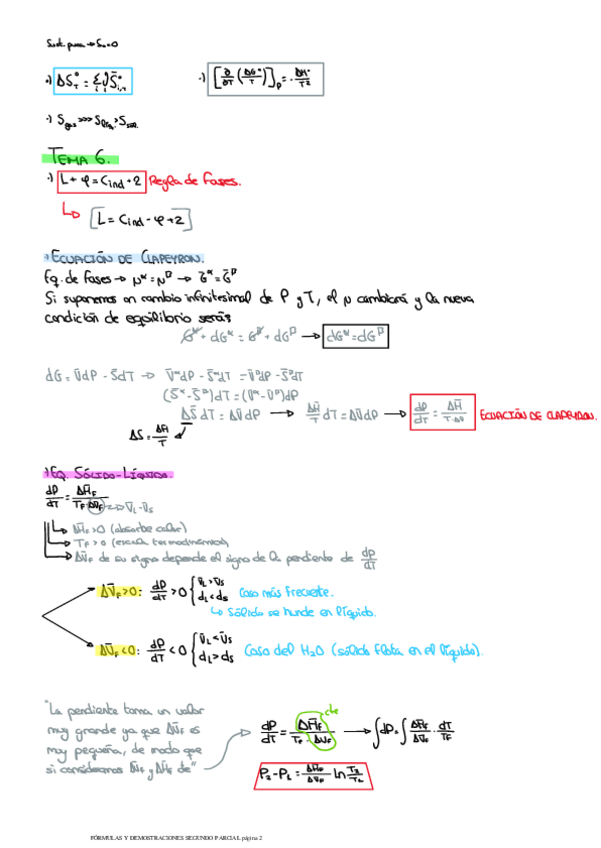 Sust. pura → S₀=0
·) ΔS°_T = Σ_i ν_i S̄°_i,T   ·) [∂/∂T (ΔG°/T)]_P = - ΔH°/T²
·) S_gas >>> S_líq. > S_sól.
TEMA 6.
·) L + φ = C_ind + 2 Regla de Fases.
↳ [L = C_ind - φ + 2]
·) ECUACIÓN DE CLAPEYRON.
Eq. de fases → μ^α = μ^β → Ḡ^α = Ḡ^β
Si suponemos un cambio infinitesimal de P y T, el μ cambiará y la nueva
condición de equilibrio será:
G^α + dG^α = G^β + dG^β → dG^α = dG^β
dG = V̄dP - S̄dT → V̄^αdP - S̄^αdT = V̄^βdP - S̄^βdT
(S̄^α - S̄^β)dT = (V̄^α - V̄^β)dP
ΔS̄ dT = ΔV̄dP → ΔH̄/T dT = ΔV̄dP → dP/dT = ΔH̄/T·ΔV̄ ECUACIÓN DE CLAPEYRON.
ΔS = ΔH/T
·) EQ. SÓLIDO-LÍQUIDO.
dP/dT = ΔH̄_F/T_F·ΔV̄_F → V̄_L - V̄_S
→ ΔH̄_F > 0 (absorbe calor)
→ T_F > 0 (escala termodinámica)
→ ΔV̄_F de su signo depende el signo de la pendiente de dP/dT
ΔV̄_F > 0: dP/dT > 0 { V̄_L > V̄_S
d_L < d_S Caso más frecuente.
↳ Sólido se hunde en líquido.
ΔV̄_F < 0: dP/dT < 0 { V̄_L < V̄_S
d_L > d_S Caso del H₂O (sólido flota en el líquido).
"La pendiente toma un valor
muy grande ya que ΔV̄_F es
muy pequeña, de modo que
si consideramos ΔV̄_F y ΔH̄_F cte"
dP/dT = ΔH̄_F/T_F·ΔV̄_F cte → ∫dP = ∫ ΔH̄_F/ΔV̄_F · dT/T_F
P₂ - P₁ = ΔH̄_F/ΔV̄_F ln T₂/T₁
FÓRMULAS Y DEMOSTRACIONES SEGUNDO PARCIAL página 2